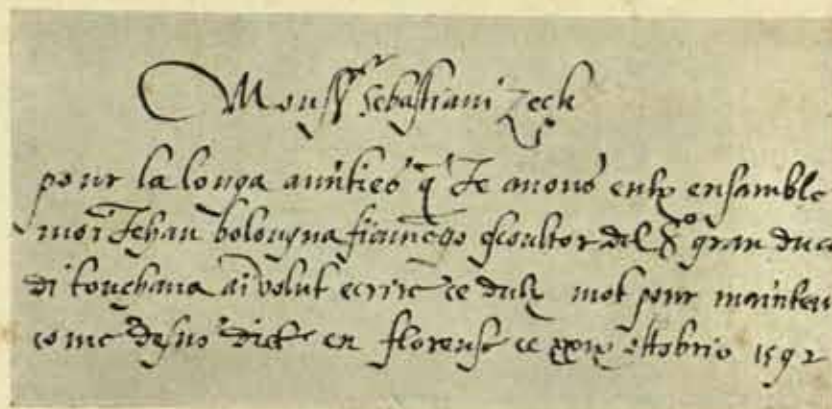 Mouss^r sebastiani zeck
pour la longa amitieo q̄ Je auons entr ensamble
moi Jehan bolougna fiamēgo scoultor del S^o gran duca
di touschana ai volut ecrire ce dulx mot pour mainten
come desuo dict en florense ce ottobrio 1592